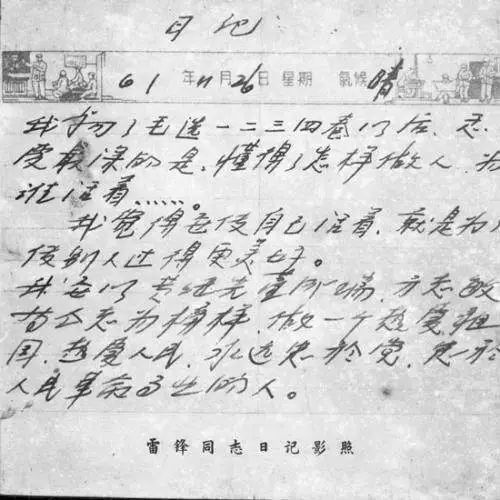 日记
61年11月26日星期 气候晴
我学习了毛选一二三四卷以后,感
受最深的是,懂得了怎样做人,为
谁活着……。
我觉得要使自己活着,就是为了
使别人过得更美好。
我要以黄继光、董存瑞、方志敏
等同志为榜样,做一个热爱祖
国,热爱人民,永远忠于党,忠于
人民革命事业的人。
雷锋同志日记影照